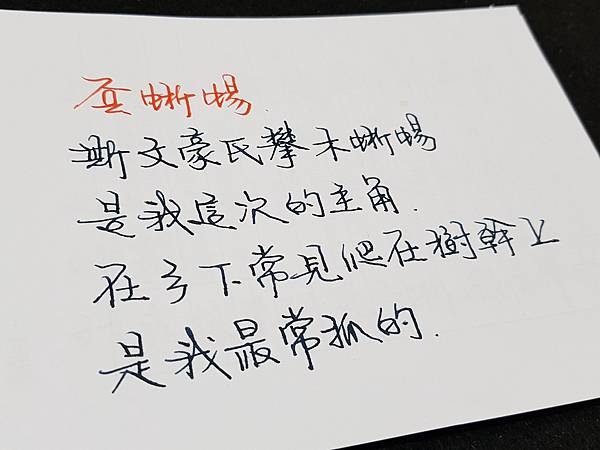 蜥蜴.
斯文豪氏攀木蜥蜴
是我這次的主角.
在乡下常見爬在樹幹上
是我最常抓的.